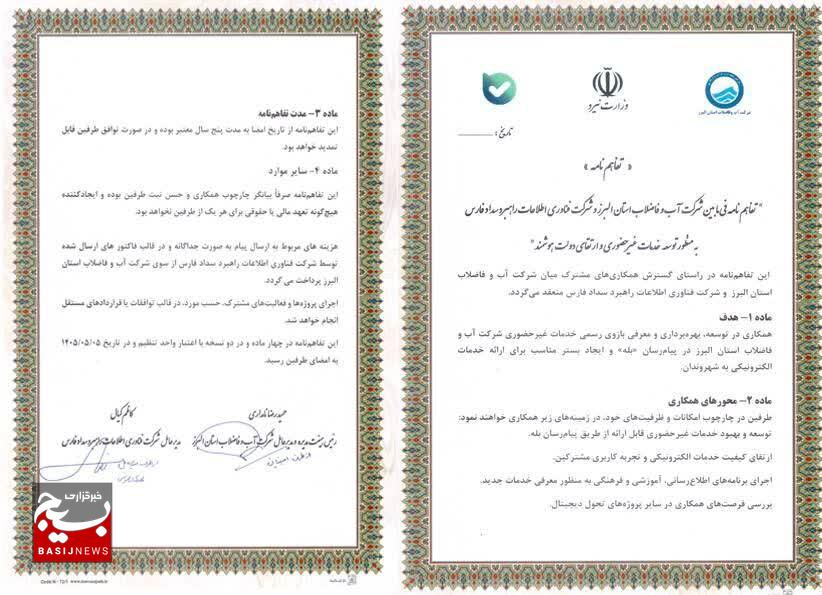 شرکت آب و فاضلاب استان البرز
وزارت نیرو
تاریخ:
« تفاهم نامه »
" تفاهم نامه فی مابین شرکت آب و فاضلاب استان البرز و شرکت فناوری اطلاعات راهبرد سداد فارس
به منظور توسعه خدمات غیرحضوری و ارتقای دولت هوشمند "
این تفاهم‌نامه در راستای گسترش همکاری‌های مشترک میان شرکت آب و فاضلاب
استان البرز و شرکت فناوری اطلاعات راهبرد سداد فارس منعقد می‌گردد.
ماده ۱- هدف
همکاری در توسعه، بهره‌برداری و معرفی بازوی رسمی خدمات غیرحضوری شرکت آب و
فاضلاب استان البرز در پیام‌رسان «بله» و ایجاد بستر مناسب برای ارائه خدمات
الکترونیکی به شهروندان.
ماده ۲- محورهای همکاری
طرفین در چارچوب امکانات و ظرفیت‌های خود، در زمینه‌های زیر همکاری خواهند نمود:
توسعه و بهبود خدمات غیرحضوری قابل ارائه از طریق پیام‌رسان بله.
ارتقای کیفیت خدمات الکترونیکی و تجربه کاربری مشترکین.
اجرای برنامه‌های اطلاع‌رسانی، آموزشی و فرهنگی به منظور معرفی خدمات جدید.
بررسی فرصت‌های همکاری در سایر پروژه‌های تحول دیجیتال.
ماده ۳- مدت تفاهم‌نامه
این تفاهم‌نامه از تاریخ امضا به مدت پنج سال معتبر بوده و در صورت توافق طرفین قابل
تمدید خواهد بود.
ماده ۴- سایر موارد
این تفاهم‌نامه صرفاً بیانگر چارچوب همکاری و حسن نیت طرفین بوده و ایجادکننده
هیچ‌گونه تعهد مالی یا حقوقی برای هر یک از طرفین نخواهد بود.
هزینه های مربوط به ارسال پیام به صورت جداگانه و در قالب فاکتور های ارسال شده
توسط شرکت فناوری اطلاعات راهبرد سداد فارس از سوی شرکت آب و فاضلاب استان
البرز پرداخت می گردد.
اجرای پروژه‌ها و فعالیت‌های مشترک، حسب مورد، در قالب توافقات یا قراردادهای مستقل
انجام خواهد شد.
این تفاهم‌نامه در چهار ماده و در دو نسخه با اعتبار واحد تنظیم و در تاریخ ۱۴۰۵/۰۵/۰۵
به امضای طرفین رسید.
حمیدرضا نامداری
رئیس هیئت مدیره و مدیرعامل شرکت آب و فاضلاب استان البرز
کاظم کیال
مدیرعامل شرکت فناوری اطلاعات راهبرد سداد فارس
خبرگزاری
بسیج
BASIJNEWS